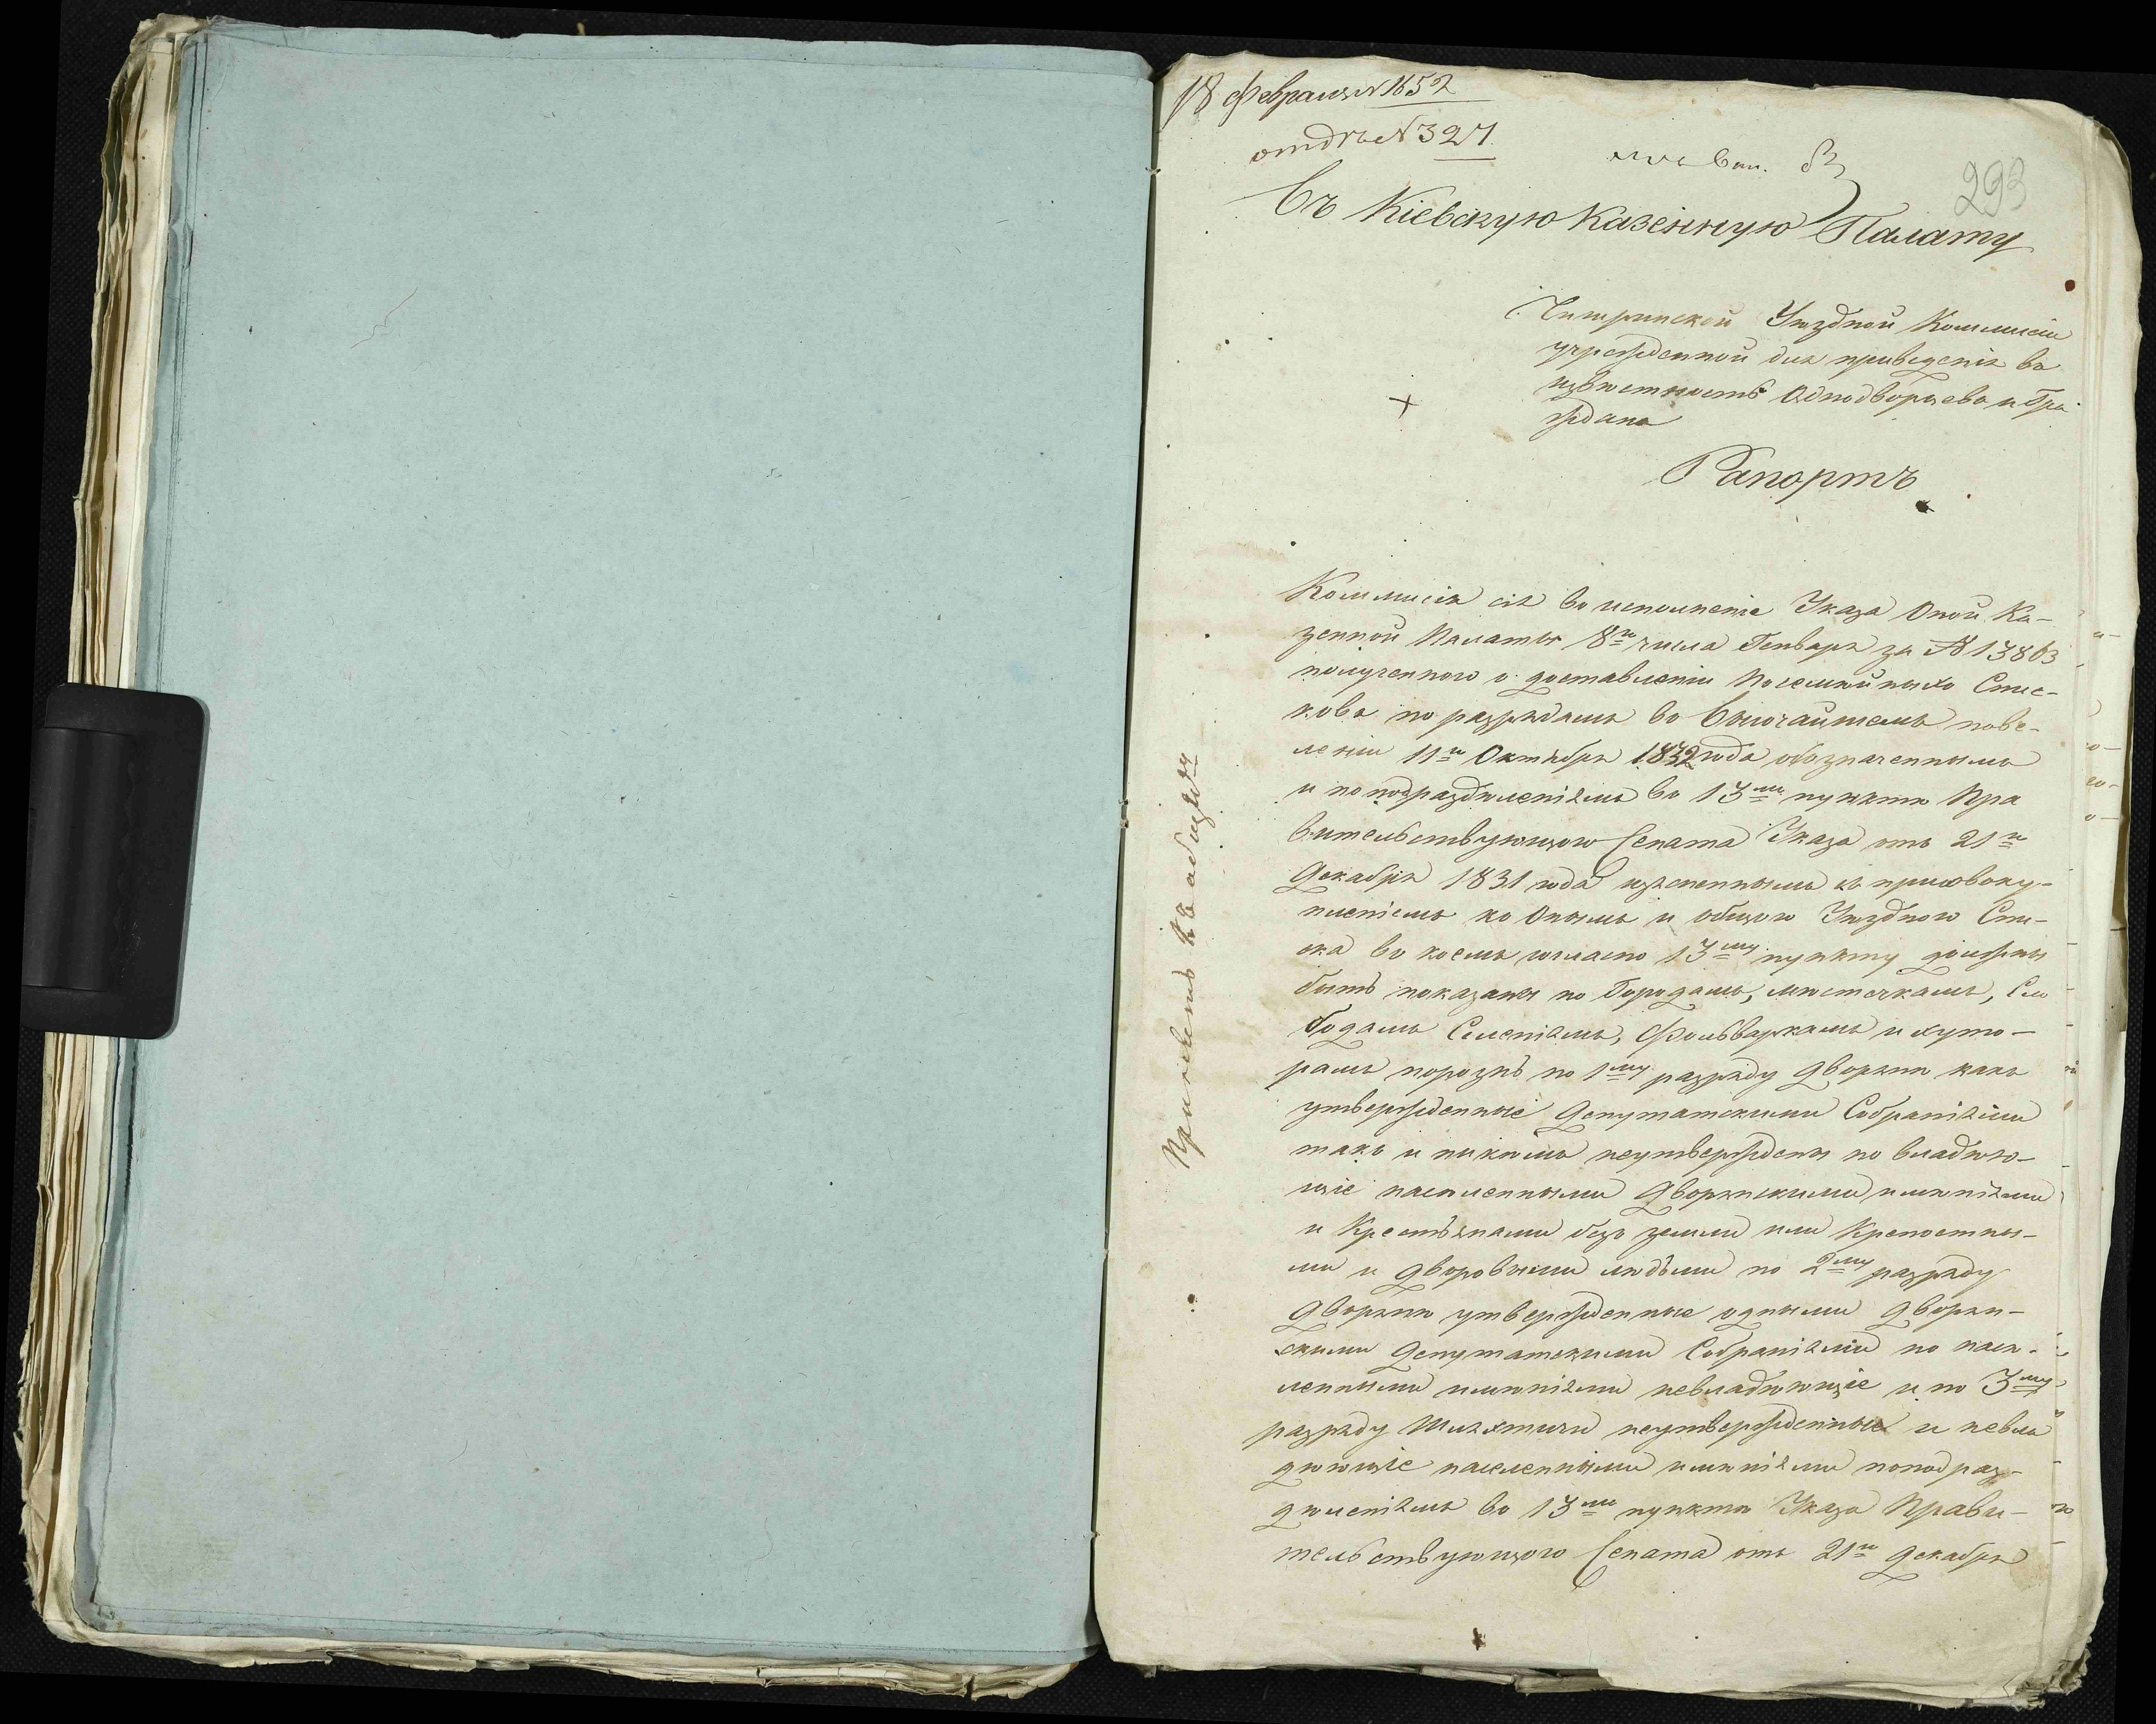 18 февраля 1652
отдъ N 327
293
Въ Кіевскую Казенную Палату
Чигринской Уездной Коммисіи
учрежденной для приведенія въ
извѣстность Однодворцевъ и Гра
жданъ
Рапортъ
Коммисія сія во исполненіе Указа Оной Ка-
зенной Палаты 8го числа Генваря за № 13863
полученного о доставленіи Посемейныхъ Спис-
ковъ по разрядамъ въ Высочайшемъ пове-
леніи 11го Октября 1832 года обозначеннымъ
и по подраздѣленіямъ въ 13мъ пунктѣ Пра
вительствующого Сената Указа отъ 21го
Декабря 1831 года изясненнымъ съ присовоку-
пленіемъ ко Онымъ и общого Уезднаго Спи-
ска въ коемъ согласно 13му пункту должны
быть показаны по Городамъ, мѣстечкамъ, Сло
бодамъ Селеніямъ, Фольваркамъ и хуто-
рамъ порознь по 1му разряду Дворяне какъ
утвержденные Депутатскими Собраніями
такъ и никѣмъ неутверждены но владѣю-
щіе населенными Дворянскими имѣніями
и Крестьянами безъ земли или Крепостны-
ми и дворовыми людьми по 2му разряду
Дворяне утвержденные одними дворян-
скими Депутатскими Собраніями но насе-
ленными имѣніями невладѣющіе и по 3му
разряду Шляхтичи неутвержденные и невла
дѣющіе населенными имѣніями поподраз-
дѣленіямъ въ 13мъ пунктѣ Указа Прави-
тельствующого Сената отъ 21го Декабря